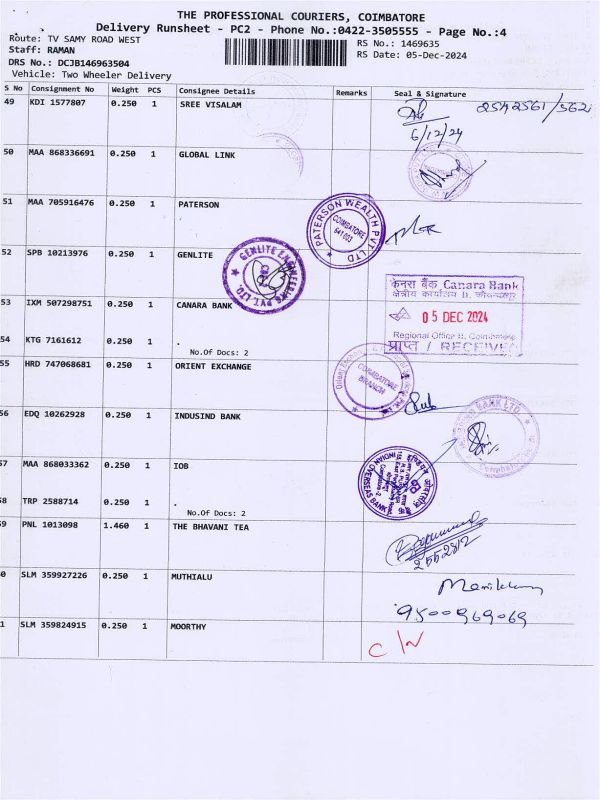 THE PROFESSIONAL COURIERS, COIMBATORE
Delivery Runsheet - PC2 - Phone No.:0422-3505555 - Page No.:4
Route: TV SAMY ROAD WEST
RS No.: 1469635
Staff: RAMAN
RS Date: 05-Dec-2024
DRS No.: DCJB146963504
Vehicle: Two Wheeler Delivery
S No Consignment No Weight PCS Consignee Details Remarks Seal & Signature
49 KDI 1577807 0.250 1 SREE VISALAM 2542561/562
6/12/24
50 MAA 868336691 0.250 1 GLOBAL LINK
51 MAA 705916476 0.250 1 PATERSON
PATERSON WEALTH PVT. LTD
COIMBATORE
641 003
52 SPB 10213976 0.250 1 GENLITE
GENLITE ENGINEERING PVT. LTD.
53 IXM 507298751 0.250 1 CANARA BANK
केनरा बैंक Canara Bank
क्षेत्रीय कार्यालय II, कोयम्बत्तूर
05 DEC 2024
Regional Office II, Coimbatore
प्राप्त / RECEIVED
54 KTG 7161612 0.250 1 .
No.Of Docs: 2
55 HRD 747068681 0.250 1 ORIENT EXCHANGE
COIMBATORE
BRANCH
56 EDQ 10262928 0.250 1 INDUSIND BANK
BANK LTD
57 MAA 868033362 0.250 1 IOB
INDIAN OVERSEAS BANK
58 TRP 2588714 0.250 1 .
No.Of Docs: 2
59 PNL 1013098 1.460 1 THE BHAVANI TEA
2552812
0 SLM 359927226 0.250 1 MUTHIALU
9500969069
1 SLM 359824915 0.250 1 MOORTHY
C/N